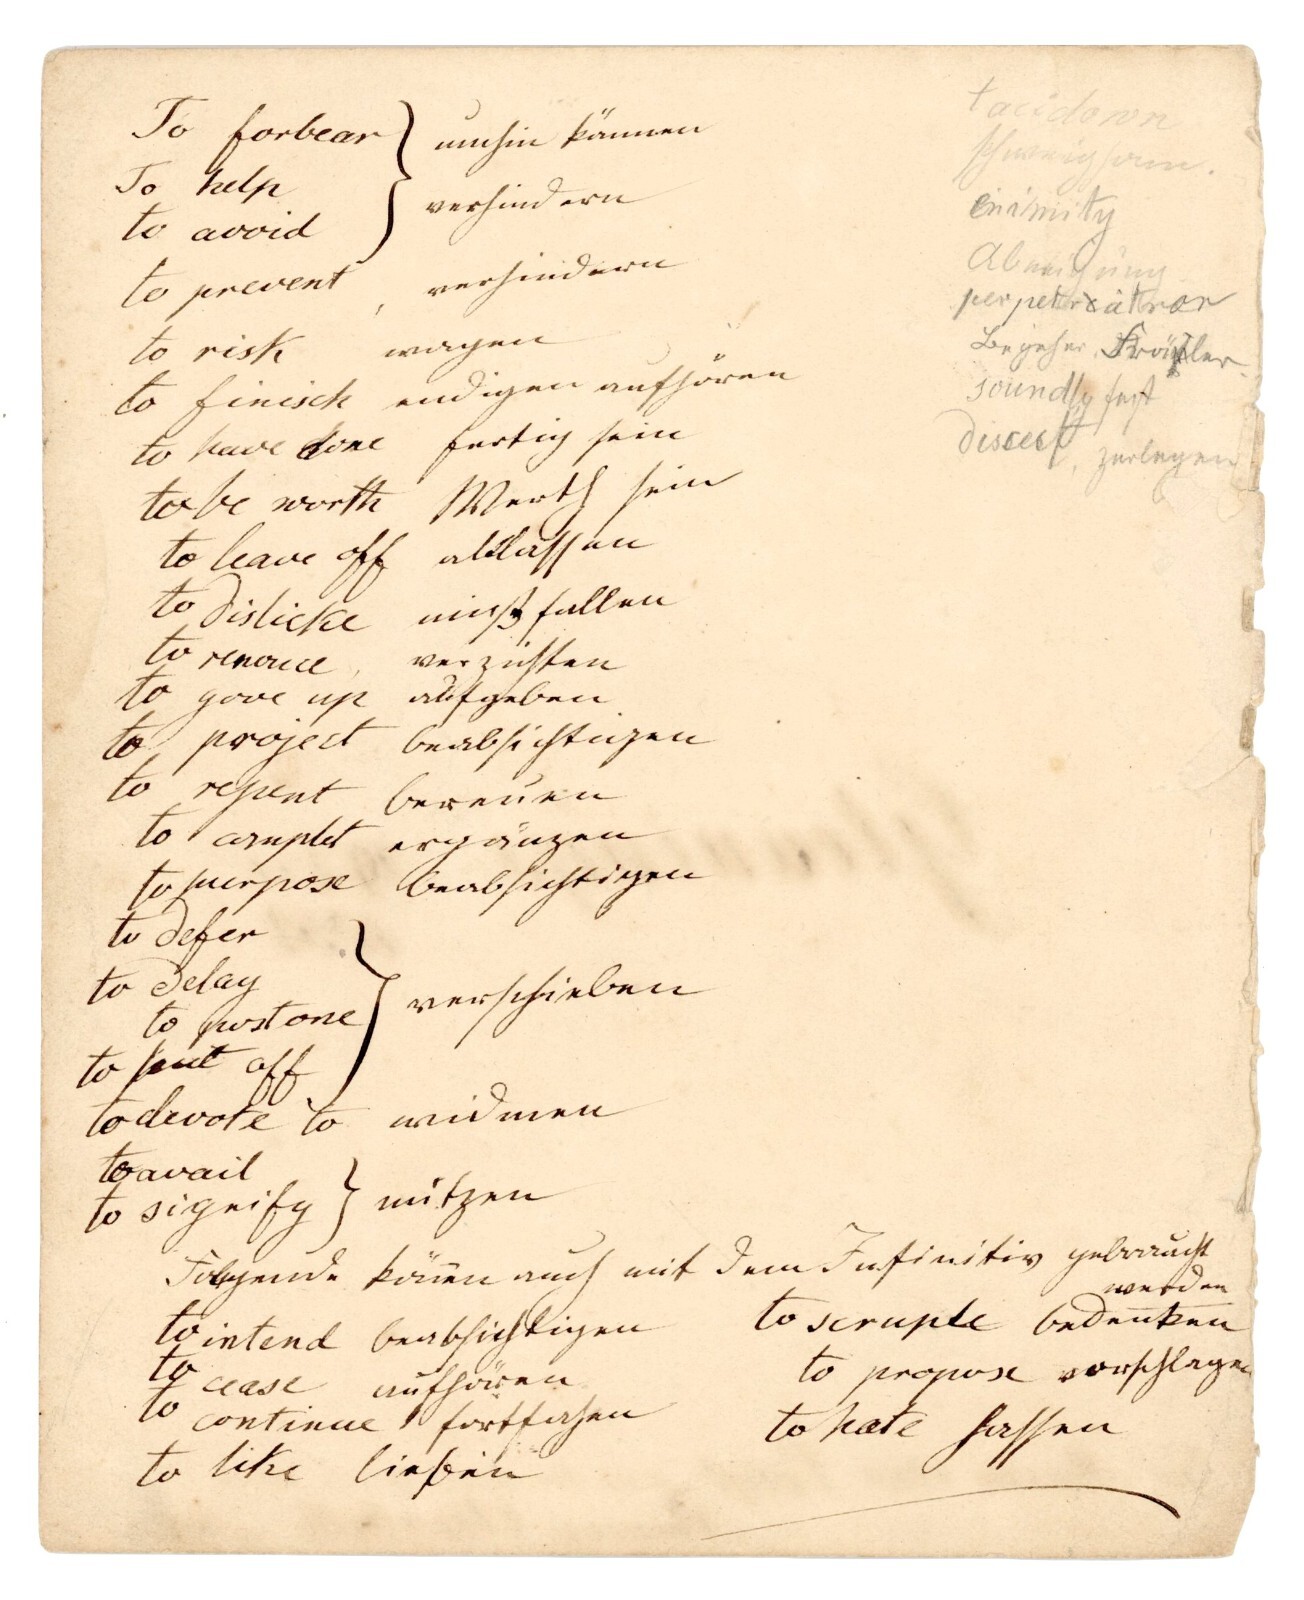 To forbear umhin können
To help
to avoid verhindern
to prevent, verhindern
to risk wagen
to finisch endigen aufhören
to have done fertig sein
to be worth Werth sein
to leave off ablassen
to dislicke mißfallen
to renouce, verzichten
to gove up aufgeben
to project beabsichtigen
to repent bereuen
to complet ergänzen
to purpose beabsichtigen
to defer
to delay
to postone verschieben
to put off
to devote to widmen
to avail
to signify nützen
Folgende könen auch mit dem Infinitiv gebraucht
werden
to intend beabsichtigen
to cease aufhören
to continue fortfahen
to like lieben
to scruple bedenken
to propose vorschlagen
to hate hassen
schweigsam.
enimity
Abneigung
soundly fest
dissect, zerlegen